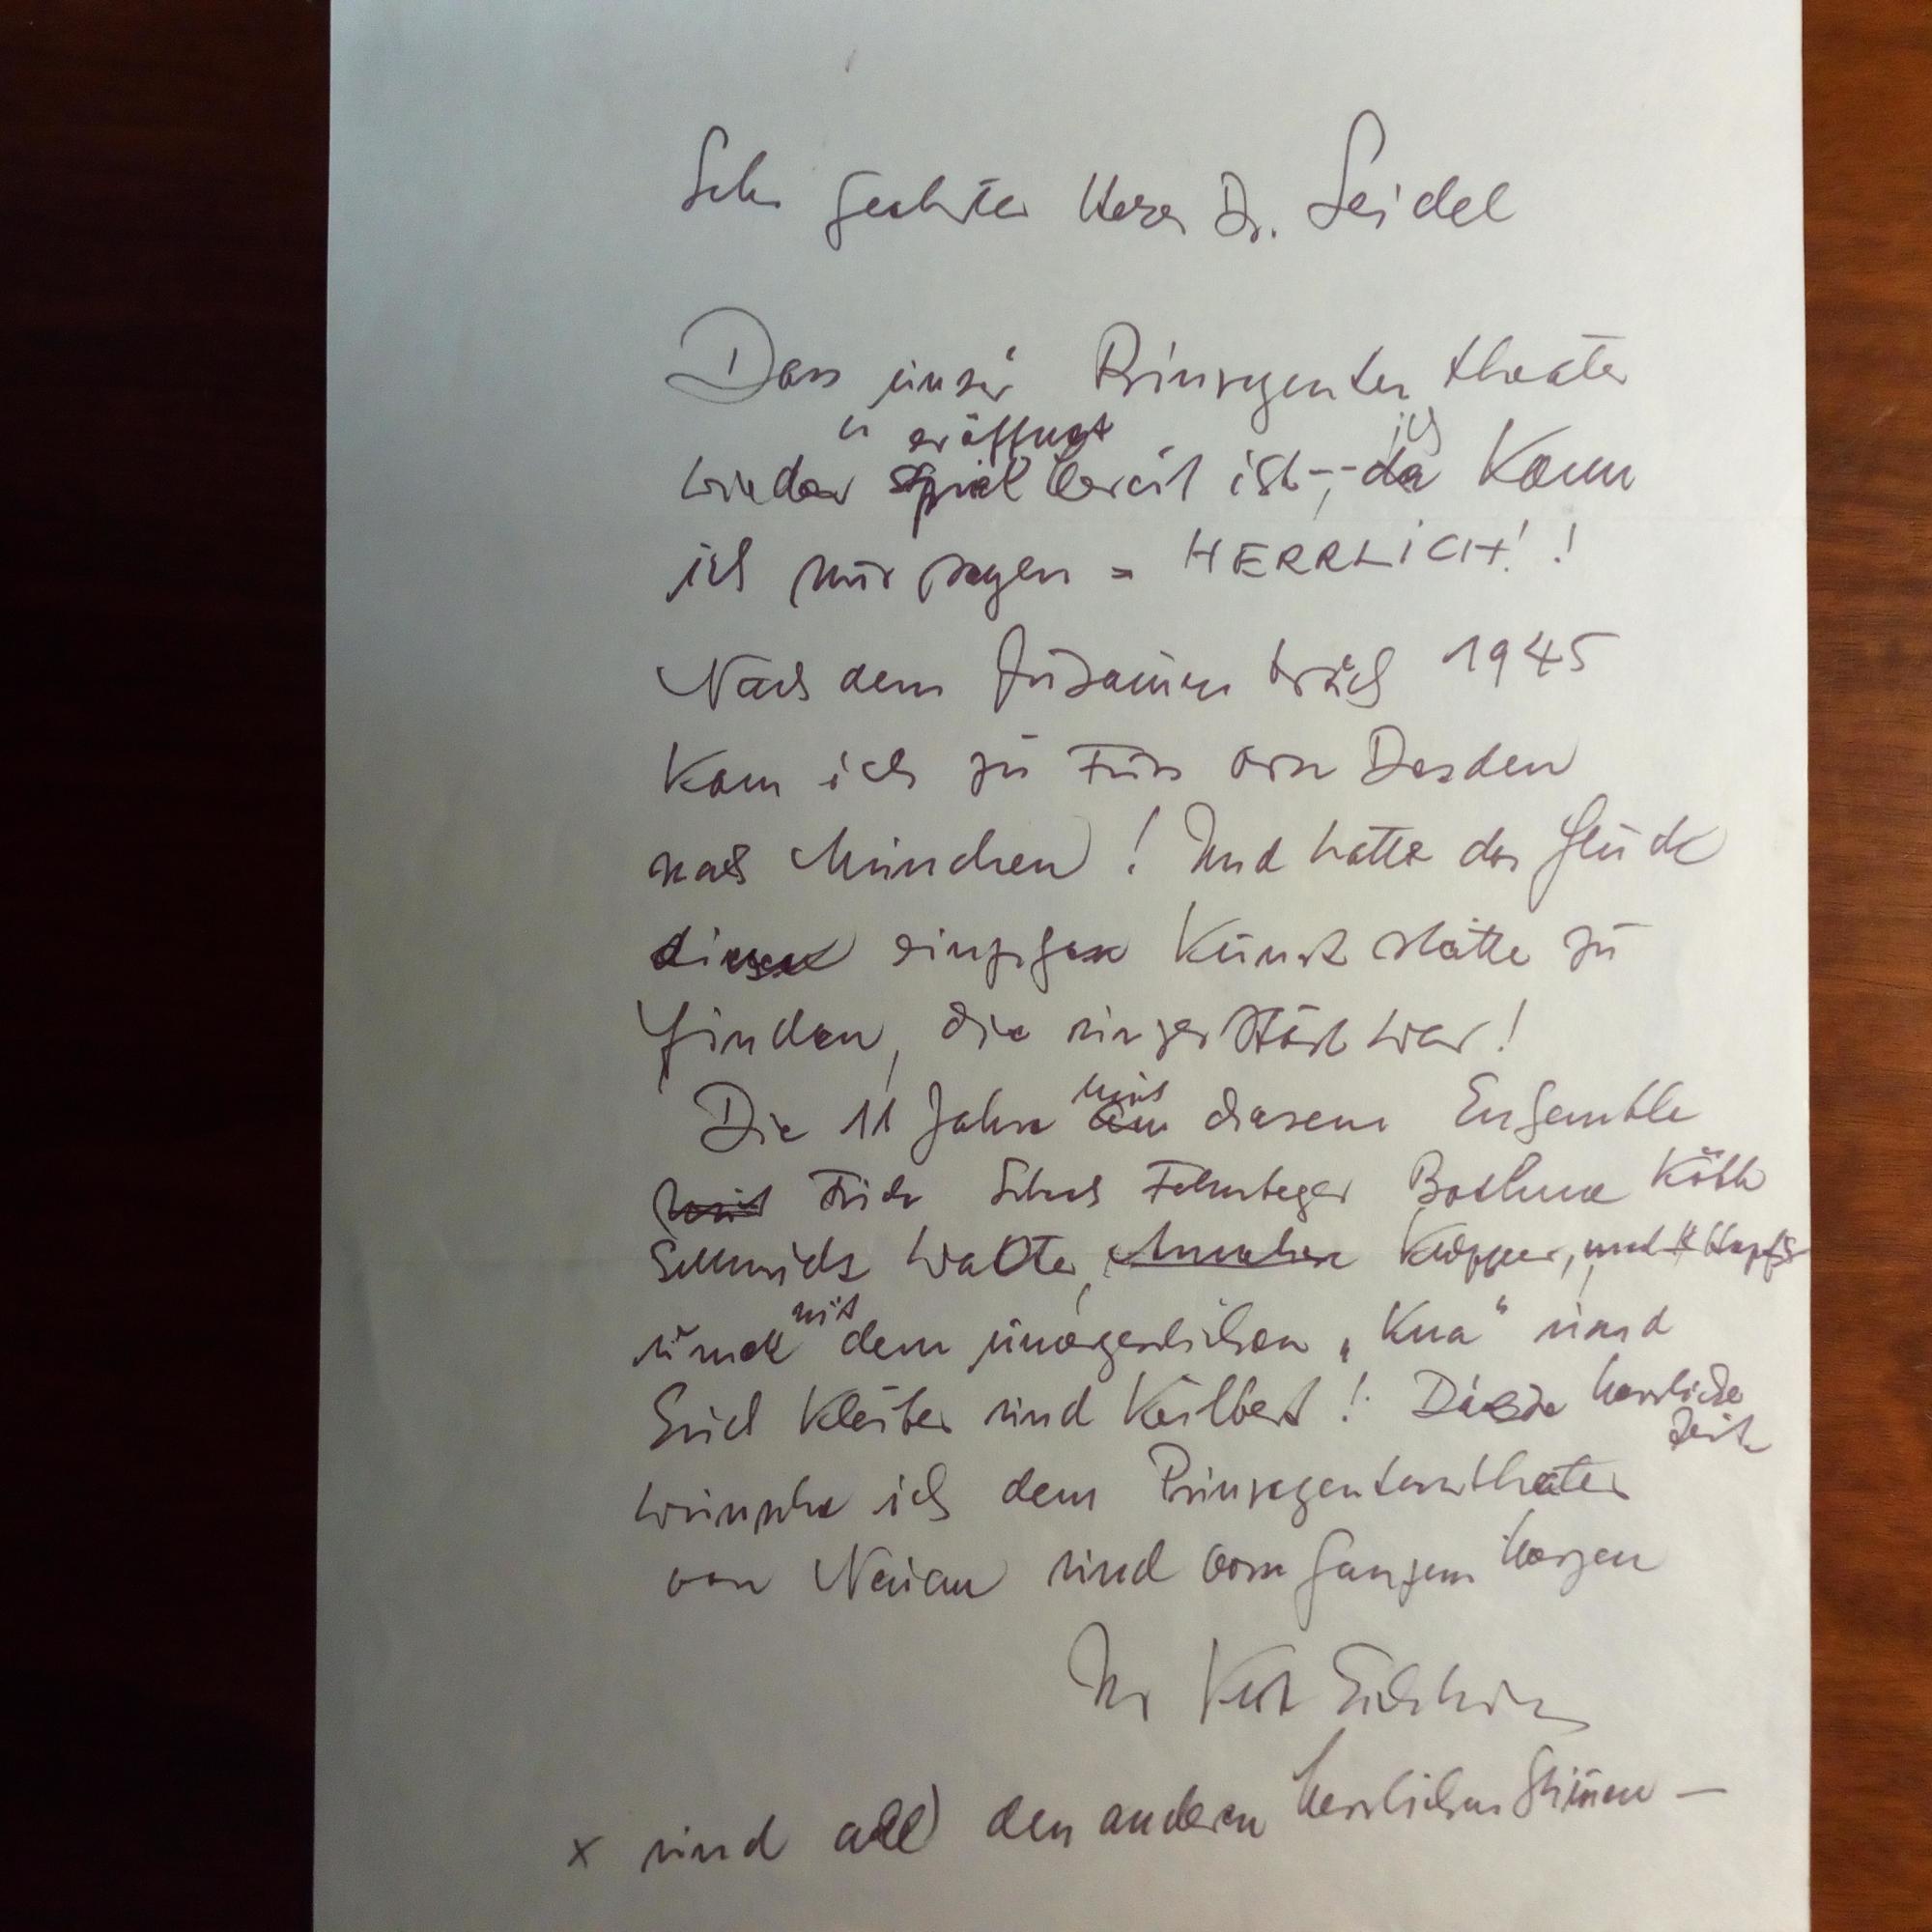 Sehr geehrter Herr Dr. Seidel
Dass unser Prinzregenten theater
eröffnet ich
wieder spielbereit ist -, - da kann
ich nur sagen = HERRLICH! !
Nach dem Zusammenbruch 1945
kam ich zu Fuss von Dresden
nach München! Und hatte das Glück
diese einzigen Kunststätte zu
finden, die unzerstört war!
mit
Die 11 Jahre an diesem Ensemble
mit Frick Schech Fehenberger Böhme Köth
Schmidt Walter, Klopper, und Hopf x
mit
und dem unvergesslichen „Kna" und
Erich Kleiber und Keilbert! Diese herrliche
Zeit
wünsche ich dem Prinzregententheater
von Neuem und von ganzem Herzen
Ihr Kurt Eichhorn
x und all den anderen herrlichen Stimmen -